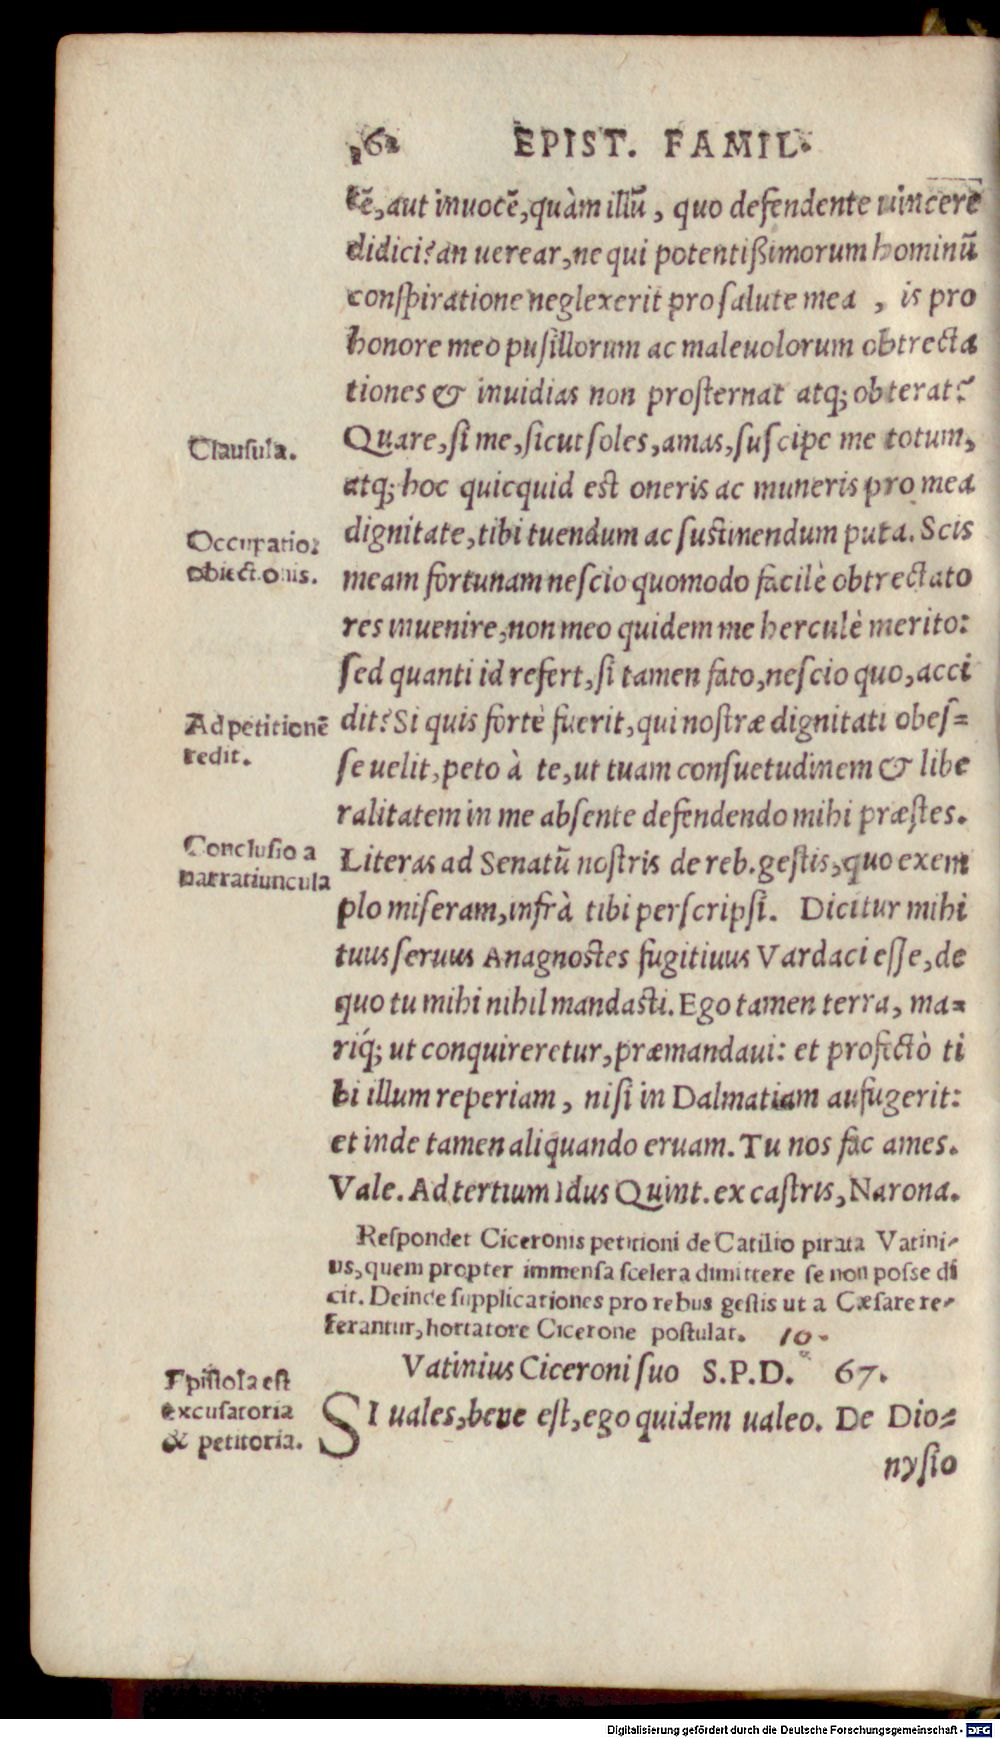 162 EPIST. FAMIL.
tē, aut inuocē, quàm illū, quo defendente uincere
didici? an uerear, ne qui potentißimorum hominū
conspiratione neglexerit pro salute mea, is pro
honore meo pusillorum ac maleuolorum obtrecta
tiones & inuidias non prosternat atq; obterat?
Clausula.
Quare, si me, sicut soles, amas, suscipe me totum,
atq; hoc quicquid est oneris ac muneris pro mea
Occupatio
obiectionis.
dignitate, tibi tuendum ac sustinendum puta. Scis
meam fortunam nescio quomodo facilè obtrectato
res inuenire, non meo quidem me herculè merito:
sed quanti id refert, si tamen fato, nescio quo, acci
Ad petitionē
redit.
dit? Si quis fortè fuerit, qui nostræ dignitati obes=
se uelit, peto à te, ut tuam consuetudinem & libe
ralitatem in me absente defendendo mihi præstes.
Conclusio a
narratiuncula
Literas ad Senatū nostris de reb. gestis, quo exem
plo miseram, infrà tibi perscripsi. Dicitur mihi
tuus seruus Anagnostes fugitiuus Vardaci esse, de
quo tu mihi nihil mandasti. Ego tamen terra, ma=
riq́; ut conquireretur, præmandaui: et profectò ti
bi illum reperiam, nisi in Dalmatiam aufugerit:
et inde tamen aliquando eruam. Tu nos fac ames.
Vale. Ad tertium Idus Quint. ex castris, Narona.
Respondet Ciceronis petitioni de Catilio pirata Vatini-
us, quem propter immensa scelera dimittere se non posse di
cit. Deinde supplicationes pro rebus gestis ut a Cæsare re-
ferantur, hortatore Cicerone postulat. 10.
Vatinius Ciceroni suo S.P.D. 67.
Epistola est
excusatoria
& petitoria.
SI uales, bene est, ego quidem ualeo. De Dio=
nysio
Digitalisierung gefördert durch die Deutsche Forschungsgemeinschaft - DFG